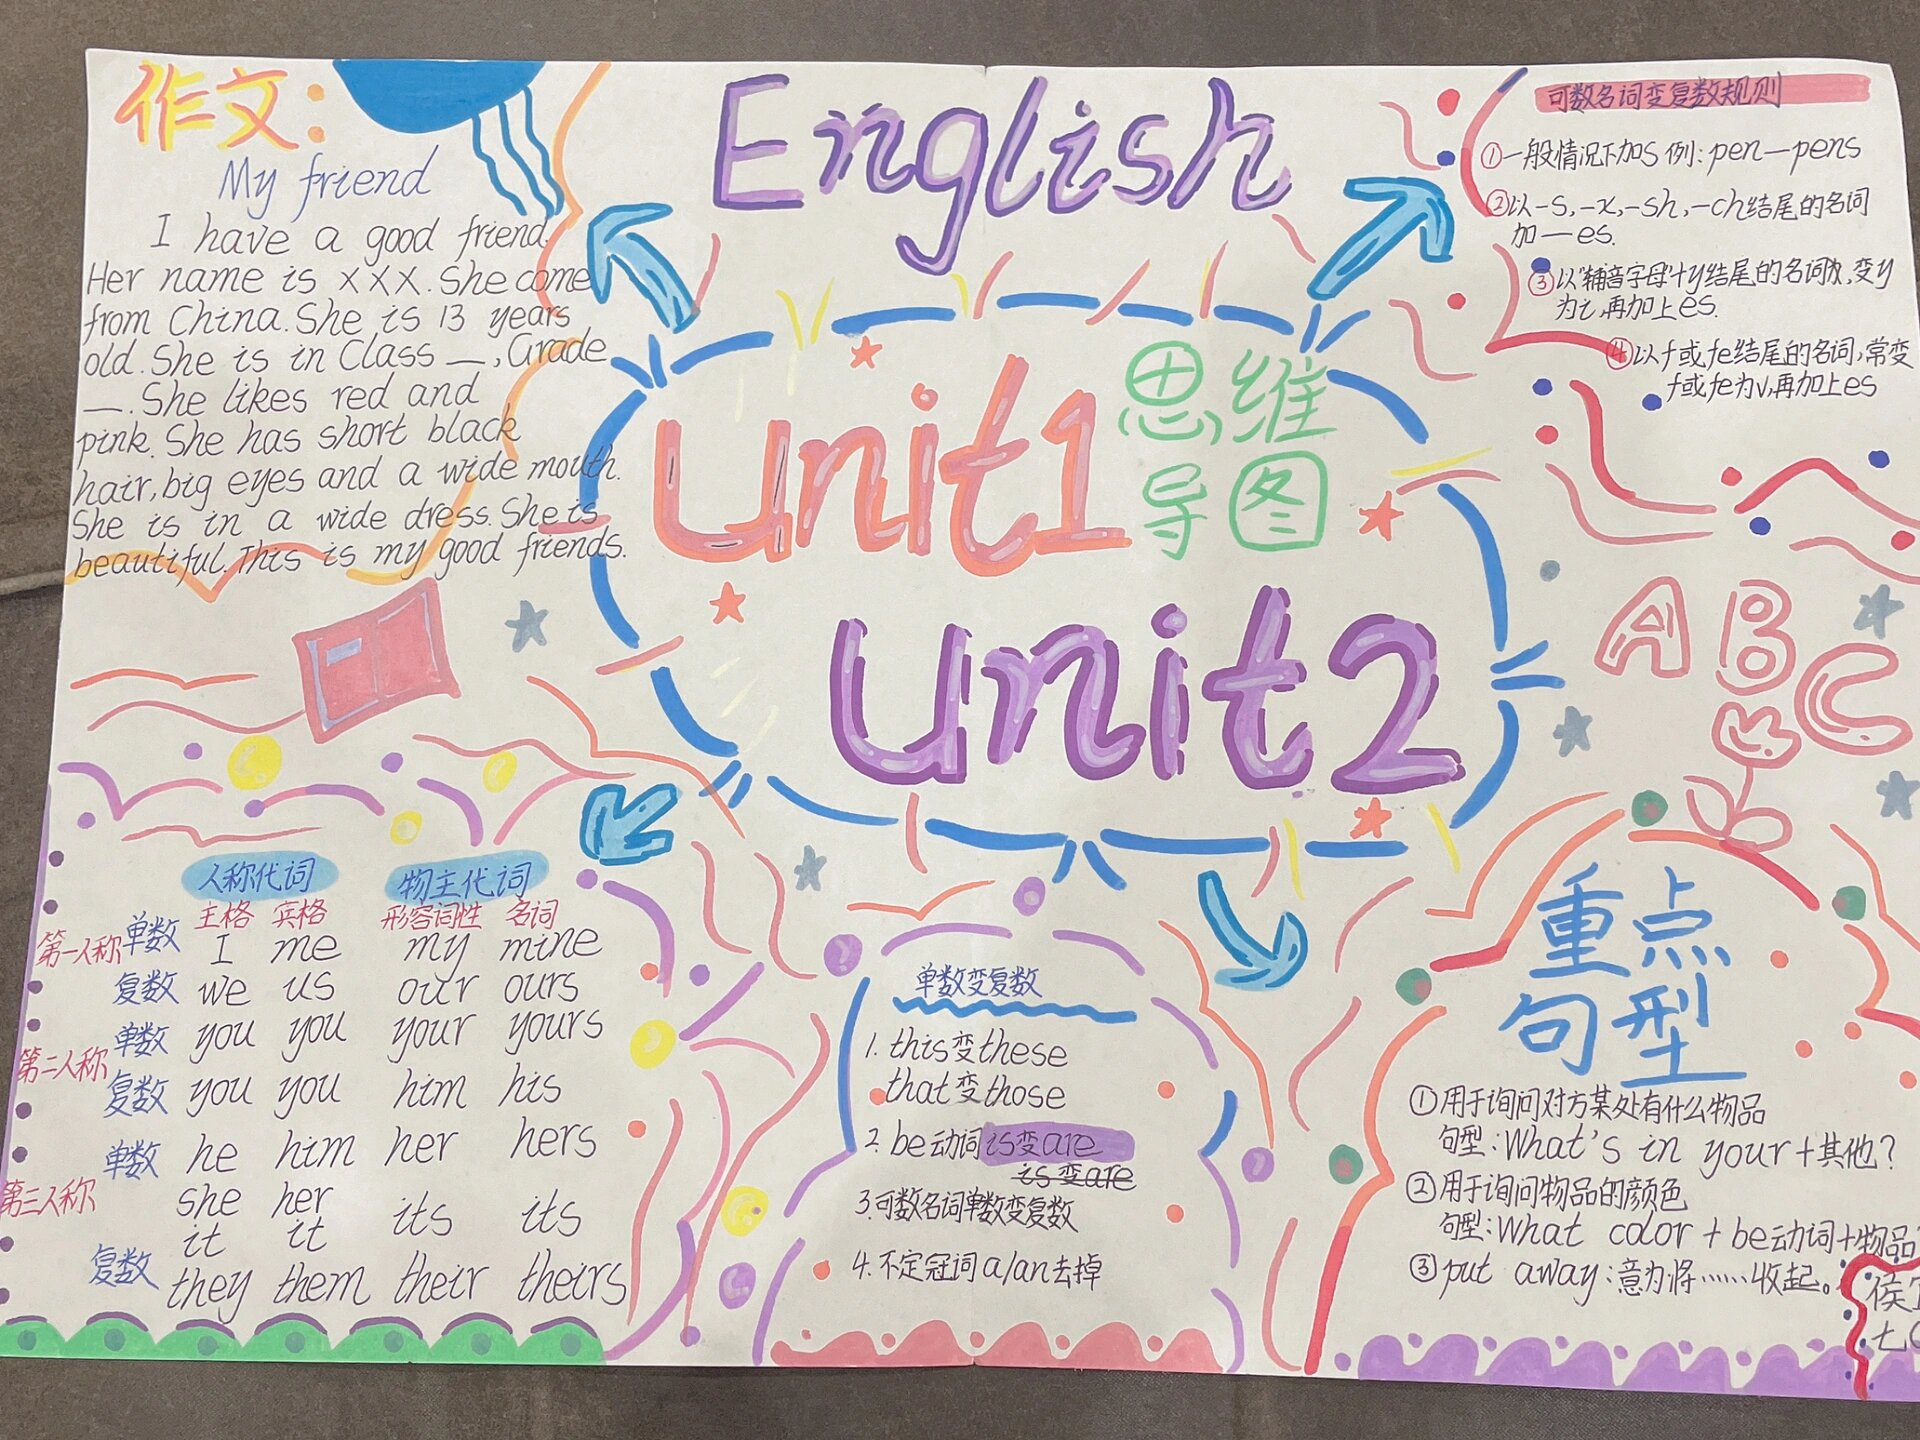 作文:
My friend
I have a good friend.
Her name is XXX. She come
from China. She is 13 years
old. She is in Class __, Grade
__. She likes red and
pink. She has short black
hair, big eyes and a wide mouth.
She is in a wide dress. She is
beautiful. This is my good friends.
English
unit1 思维
导图
unit2
可数名词变复数规则
①一般情况下加s 例:pen—pens
②以-s,-x,-sh,-ch结尾的名词
加—es.
③以"辅音字母"+y结尾的名词,变y
为i,再加上es.
④以f或fe结尾的名词,常变
f或fe为v,再加上es
ABC
人称代词 物主代词
主格 宾格 形容词性 名词
第一人称 单数 I me my mine
复数 we us our ours
第二人称 单数 you you your yours
复数 you you him his
第三人称 单数 he him her hers
she her
it it its its
复数 they them their theirs
单数变复数
1. this变these
that变those
2. be动词is变are
is变are
3.可数名词单数变复数
4.不定冠词a/an去掉
重点
句型
①用于询问对方某处有什么物品
句型:What's in your+其他?
②用于询问物品的颜色
句型:What color+be动词+物品
③put away:意为将……收起。
侯
七